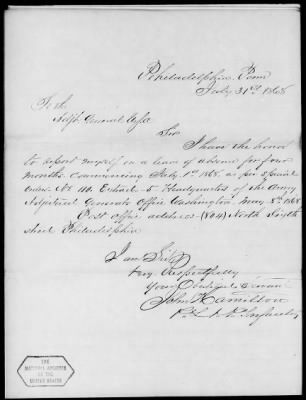 Philadelphia Penn
July 31st 1868
To the
Adjt General USA
Sir
I have the honor
to report myself on a leave of absence for four
months. Commencing July 1st 1868. as per Special
Orders No 110. Extract-5 Headquarters of the Army
Adjutant Generals Office Washington May 8th 1868
Post Office address (804) North Tenth
street Philadelphia
I am Sir
Very Respectfully
Your Obedient Servant
John Hamilton
THE
NATIONAL ARCHIVES
OF THE
UNITED STATES